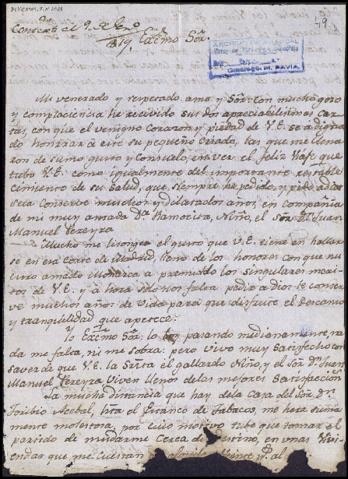 Contextada el 9 de En.º
Excmo Señ.r
ARCHIVO
M. PAVIA
Mi venerado y respetado amo, y Señ.r Con mucho gozo
y complacencia he recivido sus dos apreciabilisimas Car
tas, con que el venigno corazon y piedad de V.E. se a dignado
honrrar á este su pequeño criado, las que me llena
ron de sumo gusto y consuelo en ver el feliz viaje que
tubo V.E. como igualmente del importante restable
cimiento de su Salud, que siempre he pedido, y pido a Dios
se la conserve muchos y dilatados años, en compañia
de mi muy amada D.ª Ramoncita, Niño, el Señ.r D.n Juan
Manuel Pereyra
Mucho me lisongea el gusto que V.E. tiene en hallar
se en esa Corte de Madrid lleno de los honores con que nu
estro amado Monarca a premiado los singulares meri
tos de V.E. y á hora solo nos falta pedir a Dios le conser
ve muchos años de Vida para que disfrute el descanso
y tranquilidad que apetece:
Yo Excmo Señ.r lo voy pasando medianamente, na
da me falta, ni me sobra: pero vivo muy Satisfecho con
saver de que V.E. la Señora el gallardo Niño, y el Señ.r D.n Juan
Manuel Pereyra Viven llenos de las mejores Satisfaccion
La mucha distancia que hay de la Casa del Señ.r D.n
Toribio Acebal, hta el Estanco de Tabacos, me hera suma
mente molestosa, por cuio motivo tube que tomar el
partido de mudarme Cerca de mi destino, en unas Vivi
endas que me Cuestan veinte p.s al